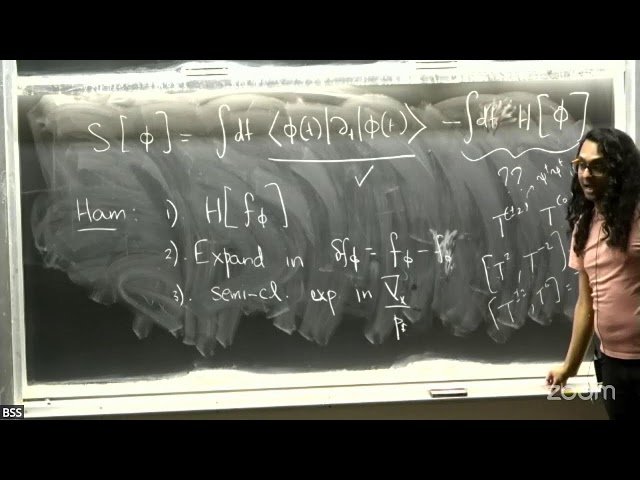 S[φ] = ∫dt ⟨φ(t)|∂ₜ|φ(t)⟩ − ∫dt H[φ]
✓
??
Ham: 1). H[f_φ]
2). Expand in δf_φ = f_φ − f₀
3). semi-cl. exp in ∇ₓ/p_F
BSS
zoom